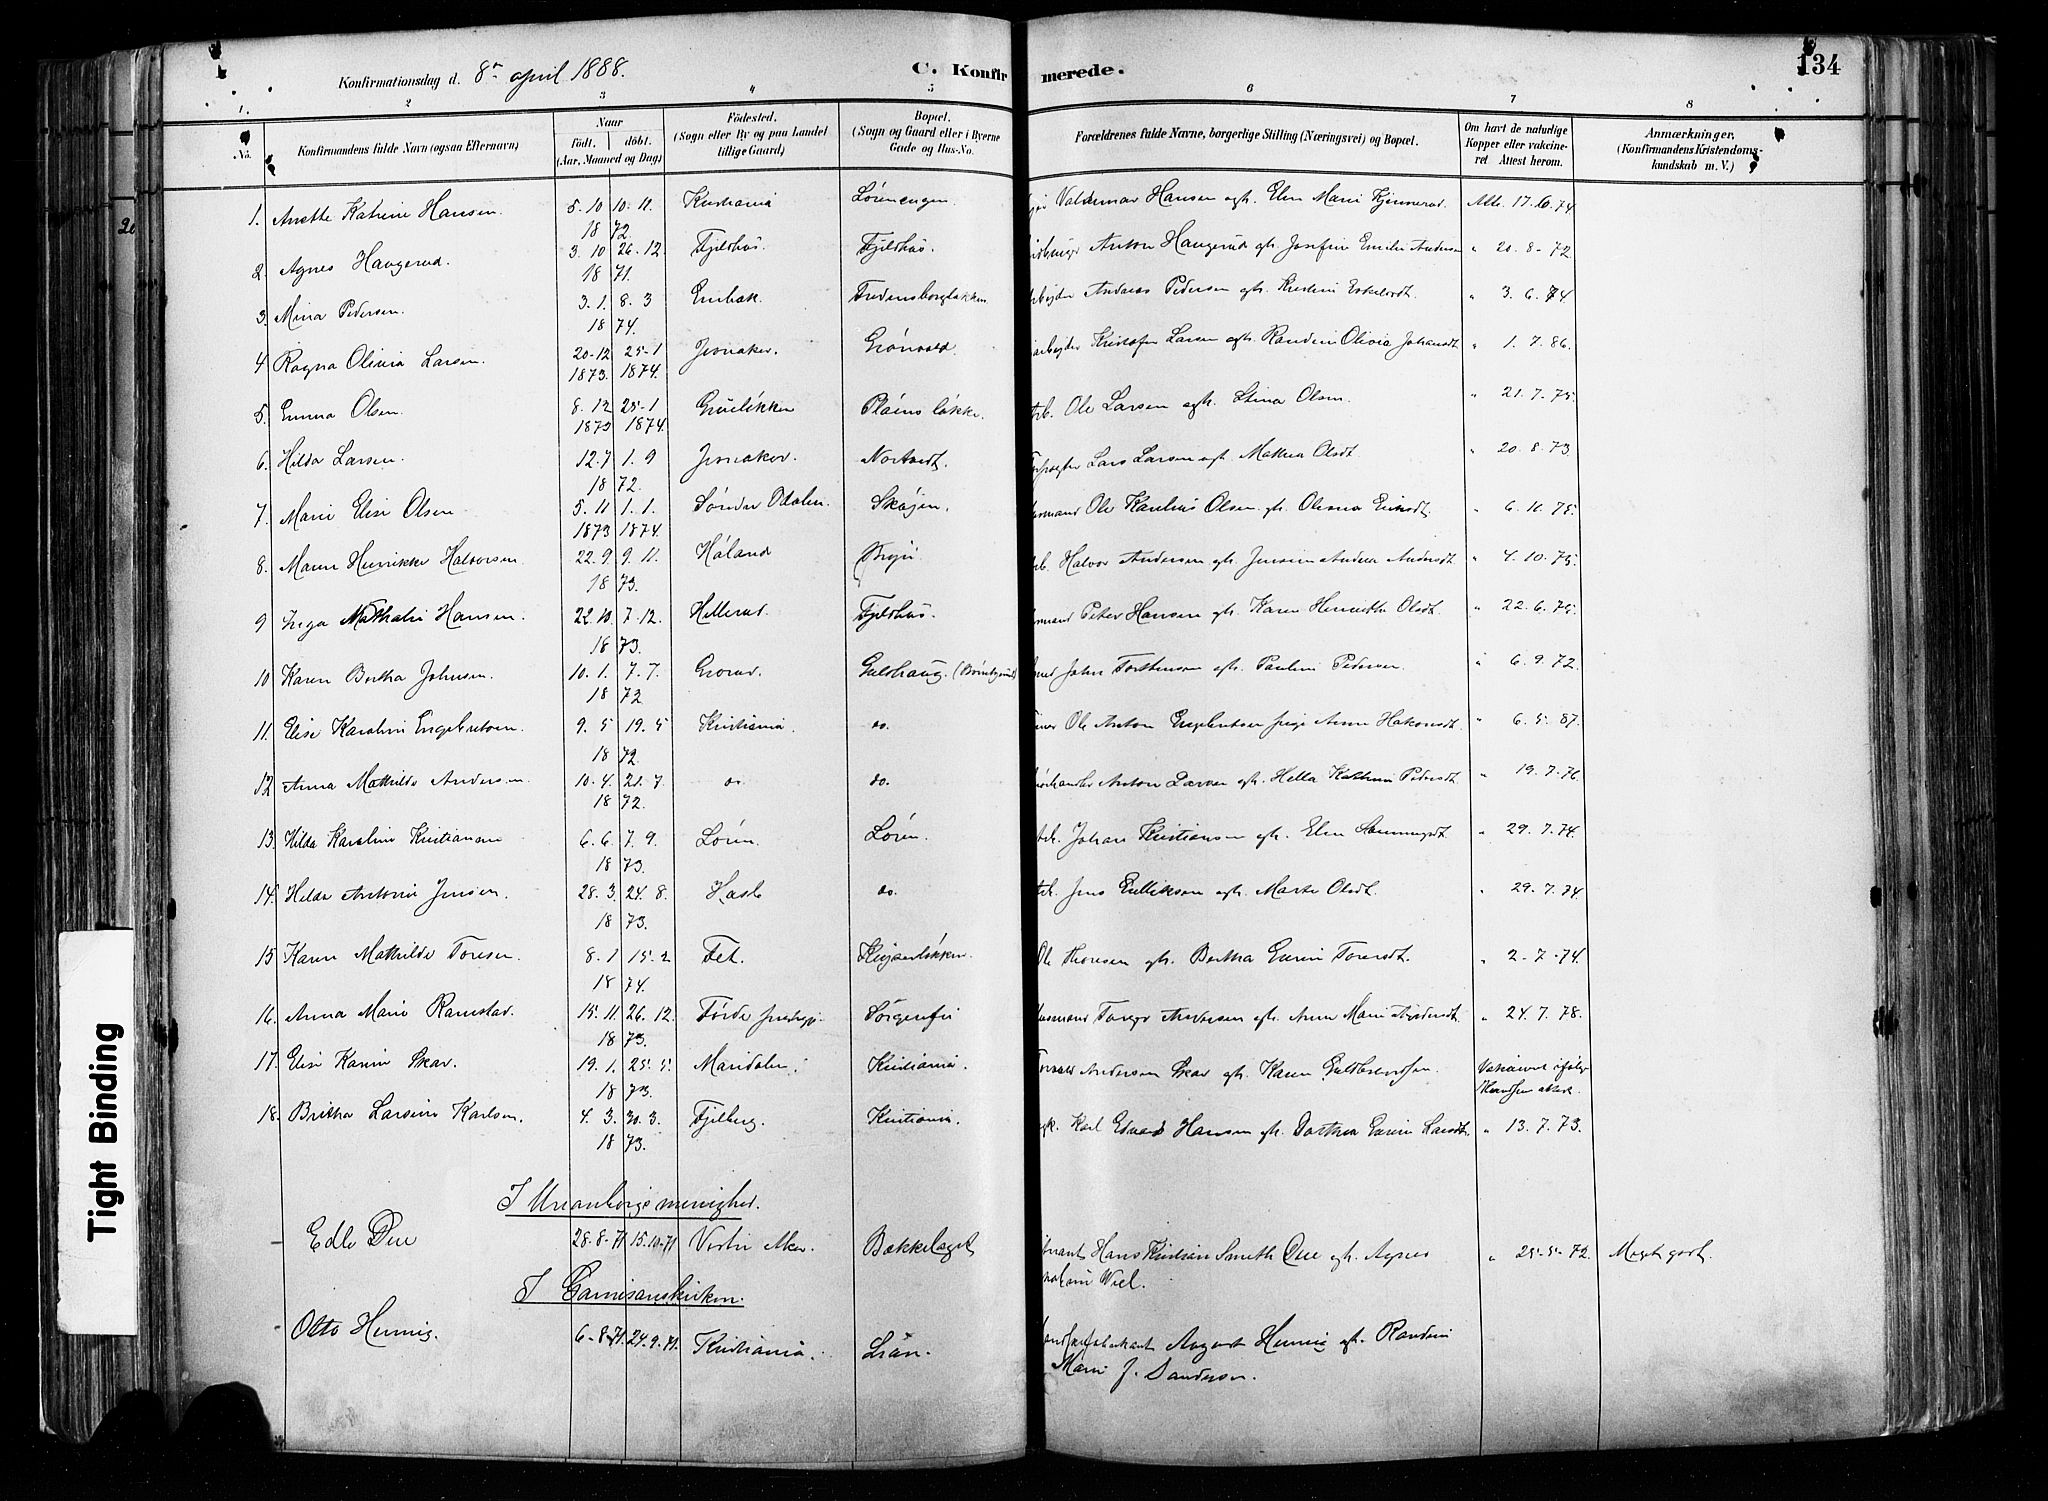 Konfirmationsdag d. 8de april 1888.
C. Konfirmerede.
134
1. 2 3 4 5 6 7 8
No.
Konfirmandens fulde Navn (ogsaa Efternavn)
Naar
født. døbt.
(Aar, Maaned og Dag)
Fødested.
(Sogn eller By og paa Landet
tillige Gaard)
Bopæl.
(Sogn og Gaard eller i Byerne
Gade og Hus-No.
Forældrenes fulde Navne, borgerlige Stilling (Næringsvei) og Bopæl.
Om havt de naturlige
Kopper eller vakcine-
ret Attest herom.
Anmærkninger,
(Konfirmandens Kristendoms-
kundskab m. V.)
1. Anette Katrine Hansen 5. 10 10. 11. Kristiania Lørenengen Valdemar Hansen og h. Elen Marie 17. 6. 74
18 72.
2 Agnes Haugerud. 3. 10 26. 12. Fjeldhus. Fjeldhus. Anton Haugerud og h. Josefine Emilie Anders " 20. 8. 72
18 71.
3. Mina Pedersen. 3. 1. 8. 3 Enebak. Fredensborgløkken Andreas Pedersen og h. Kristine " 3. 6. 74.
18 74.
4 Ragna Olivia Larsen. 20-12 25-1 Jevnaker. Grønvold. Kristofer Larsen og h. Randine Olivia Johansdt " 1. 7. 86.
1873. 1874.
5. Emma Olsen. 8. 12 25-1 Grueløkken Pløensløkke. Arb. Ole Larsen og h. Stina Olsen " 21. 7. 75.
1873 1874.
6. Hilda Larsen. 12. 7 1. 9 Jevnaker. Nortvedt. Lars Larsen og h. Olsdt. " 20. 8. 73
18 72.
7. Marie Elise Olsen 5. 11 1. 1. Søndre Odalen. Skøjen. Ole Karelius Olsen og h. Oleana Eriksdt. " 6. 11. 75.
1873 1874.
8. Maren Henrikke Halvorsen. 22. 9 9. 11. Høland Bryn Arb. Halvor Andersen og h. Jensine Andrea Andersdt " 4. 10. 75.
18 73.
9 Inga Mathalie Hansen. 22. 10. 7. 12. Hellerud. Fjeldhus. Peter Hansen og h. Karen Henriette Olsdt. " 22. 6. 75.
18 73.
10 Karen Bertha Johnsen. 10. 1. 7. 7. Grorud. Gulshaug. John Torstensen og h. Pauline Pedersen. " 6. 9. 72.
18 72
11. Elise Karoline Engebretsen. 9. 5 19. 5 Kristiania. do. Ole Anton Engebretsen Anne Hakonsdt. " 6. 5. 87.
18 72.
12 Anna Mathilde Andersen 10. 4. 21. 7. do. do. Anton Larsen og h. Hella Kathrine Pedersdt. " 19. 7. 76
18 72.
13. Hilda Karoline Kristiansen 6. 6. 7. 9. Løren. Løren. Arb. Johan Kristiansen og h. Elen " 29. 7. 74.
18 73.
14. Hilda Antonie Jensen. 28. 3. 24. 8. Hasle do. Arb. Jens Gulliksen og h. Marte Olsdt. " 29. 7. 74
18 73.
15 Karen Mathilde Toresen 8. 1 15. 2 Fet. Keyserløkken. Ole Thoresen og h. Bertha Evine Toresdt. " 2. 7. 74.
18 74.
16. Anna Marie Ramstad. 15. 11. 26. 12. Førde prestegj. Sorgenfri Husmand Torger Andersen og h. Anne Marie " 24. 7. 78.
18 73.
17. Elise Karine Skar. 19. 1. 25. 5. Maridalen. Kristiania. Andersen Skar og h. Karen Guldbrandsen. Vakcineret ifølge
18 73.
18. Britha Larsine Karlsen. 4. 3. 30. 3. Fjelberg. Kristiania. Karl Edvard Hansen og h. Dorthea Larsdt. " 13. 7. 73.
18 73.
I Uranienborgs menighed.
Edle Due 28. 8. 71 15. 10. 71 Vestre Aker. Bækkelaget Hans Kristian Smith Due og h. Agnes " 25-5- 72. Meget godt.
Wiel.
I Garnisonskirken.
Otto Hennig. 6-8-71. 24. 9. 71. Kristiania. Lian. August Hennig og h. Randine
Marie J. Sandersen.
Tight Binding